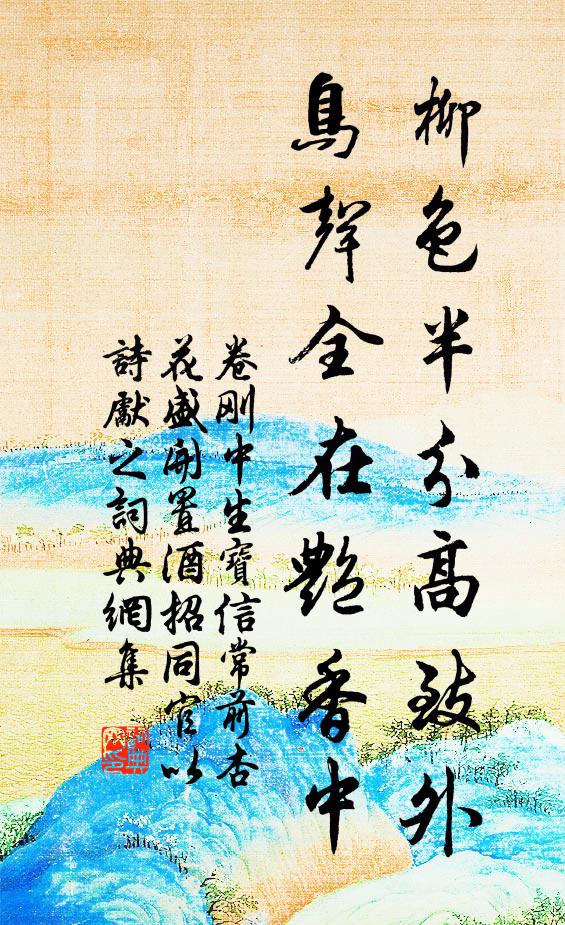 柳色半分高致外
鳥聲全在艷香中
卷剛中生寶信常前杏
花盛開置酒招同官以
詩獻之詞典網集